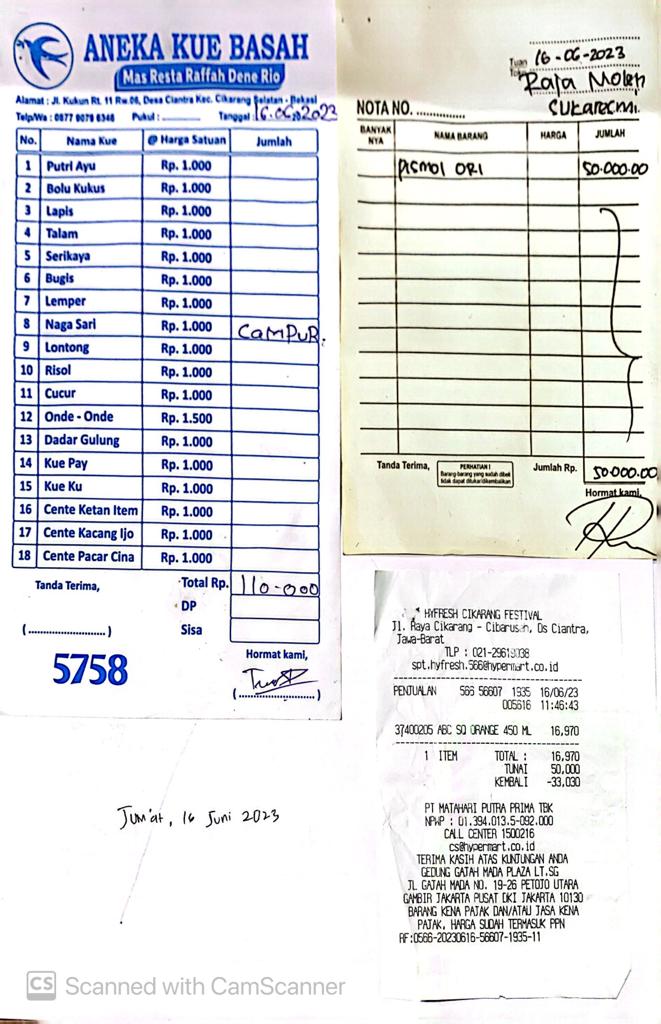 ANEKA KUE BASAH
Mas Resta Raffah Dene Rio
Alamat : Jl. Kukun Rt. 11 Rw.06, Desa Ciantra Kec. Cikarang Selatan - Bekasi
Telp/Wa : 0877 8079 8348 Pukul : ............ Tanggal : 16.06.2023
No. Nama Kue @ Harga Satuan Jumlah
1 Putri Ayu Rp. 1.000
2 Bolu Kukus Rp. 1.000
3 Lapis Rp. 1.000
4 Talam Rp. 1.000
5 Serikaya Rp. 1.000
6 Bugis Rp. 1.000
7 Lemper Rp. 1.000
8 Naga Sari Rp. 1.000 CAMPUR.
9 Lontong Rp. 1.000
10 Risol Rp. 1.000
11 Cucur Rp. 1.000
12 Onde - Onde Rp. 1.500
13 Dadar Gulung Rp. 1.000
14 Kue Pay Rp. 1.000
15 Kue Ku Rp. 1.000
16 Cente Ketan Item Rp. 1.000
17 Cente Kacang Ijo Rp. 1.000
18 Cente Pacar Cina Rp. 1.000
Tanda Terima, Total Rp. 110-000
DP
(........................) Sisa
5758 Hormat kami,
(........................)
Tuan 16-06-2023
Toko Raja Molen
NOTA NO. .............. Sukaresmi.
BANYAK NYA NAMA BARANG HARGA JUMLAH
PISMOL ORI 50.000.00
Tanda Terima, PERHATIAN ! Jumlah Rp. 50.000.00
Barang-barang yang sudah dibeli
tidak dapat ditukar/dikembalikan
Hormat kami,
HYFRESH CIKARANG FESTIVAL
Jl. Raya Cikarang - Cibarusan, Ds Ciantra,
Jawa-Barat
TLP : 021-29619038
spt.hyfresh.566@hypermart.co.id
PENJUALAN 566 56607 1935 16/06/23
005616 11:46:43
37400205 ABC SQ ORANGE 450 ML 16,970
1 ITEM TOTAL : 16,970
TUNAI 50,000
KEMBALI -33,030
PT MATAHARI PUTRA PRIMA TBK
NPWP : 01.394.013.5-092.000
CALL CENTER 1500216
cs@hypermart.co.id
TERIMA KASIH ATAS KUNJUNGAN ANDA
GEDUNG GAJAH MADA PLAZA LT.SG
JL GAJAH MADA NO. 19-26 PETOJO UTARA
GAMBIR JAKARTA PUSAT DKI JAKARTA 10130
BARANG KENA PAJAK DAN/ATAU JASA KENA
PAJAK, HARGA SUDAH TERMASUK PPN
RF:0566-20230616-56607-1935-11
Jum'at, 16 Juni 2023
CS Scanned with CamScanner